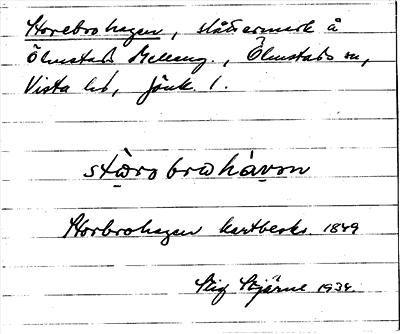 Storebrohagen, slåttermark å
Ölmstads Melleng., Ölmstads sn,
Vista hd, Jönk. l.
stǫ̀robrꞷhàvon
Storbrohagen kartbeskr. 1849
Stig Stjärne 1934.